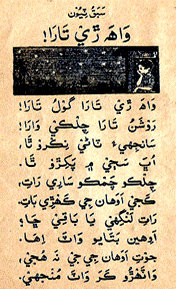 سبق ٽيون
واھ ڙي تارا!
واھ ڙي تارا گول تارا!
روشن تارا چلڪي وارا!
سانجهيءَ تائين نڪرو ٿا.
اڀ سڄي ۾ پکڙو ٿا.
چلڪو چمڪو ساري رات،
ڪجي اوهان جي ڪهڙي بات.
رات لنگهي يا باقي آھ؛
اوهين بتايو واٽ اها.
جوت اوهان جي جي نہ هجي،
وانهڙو ڪر واٽ منجهي.